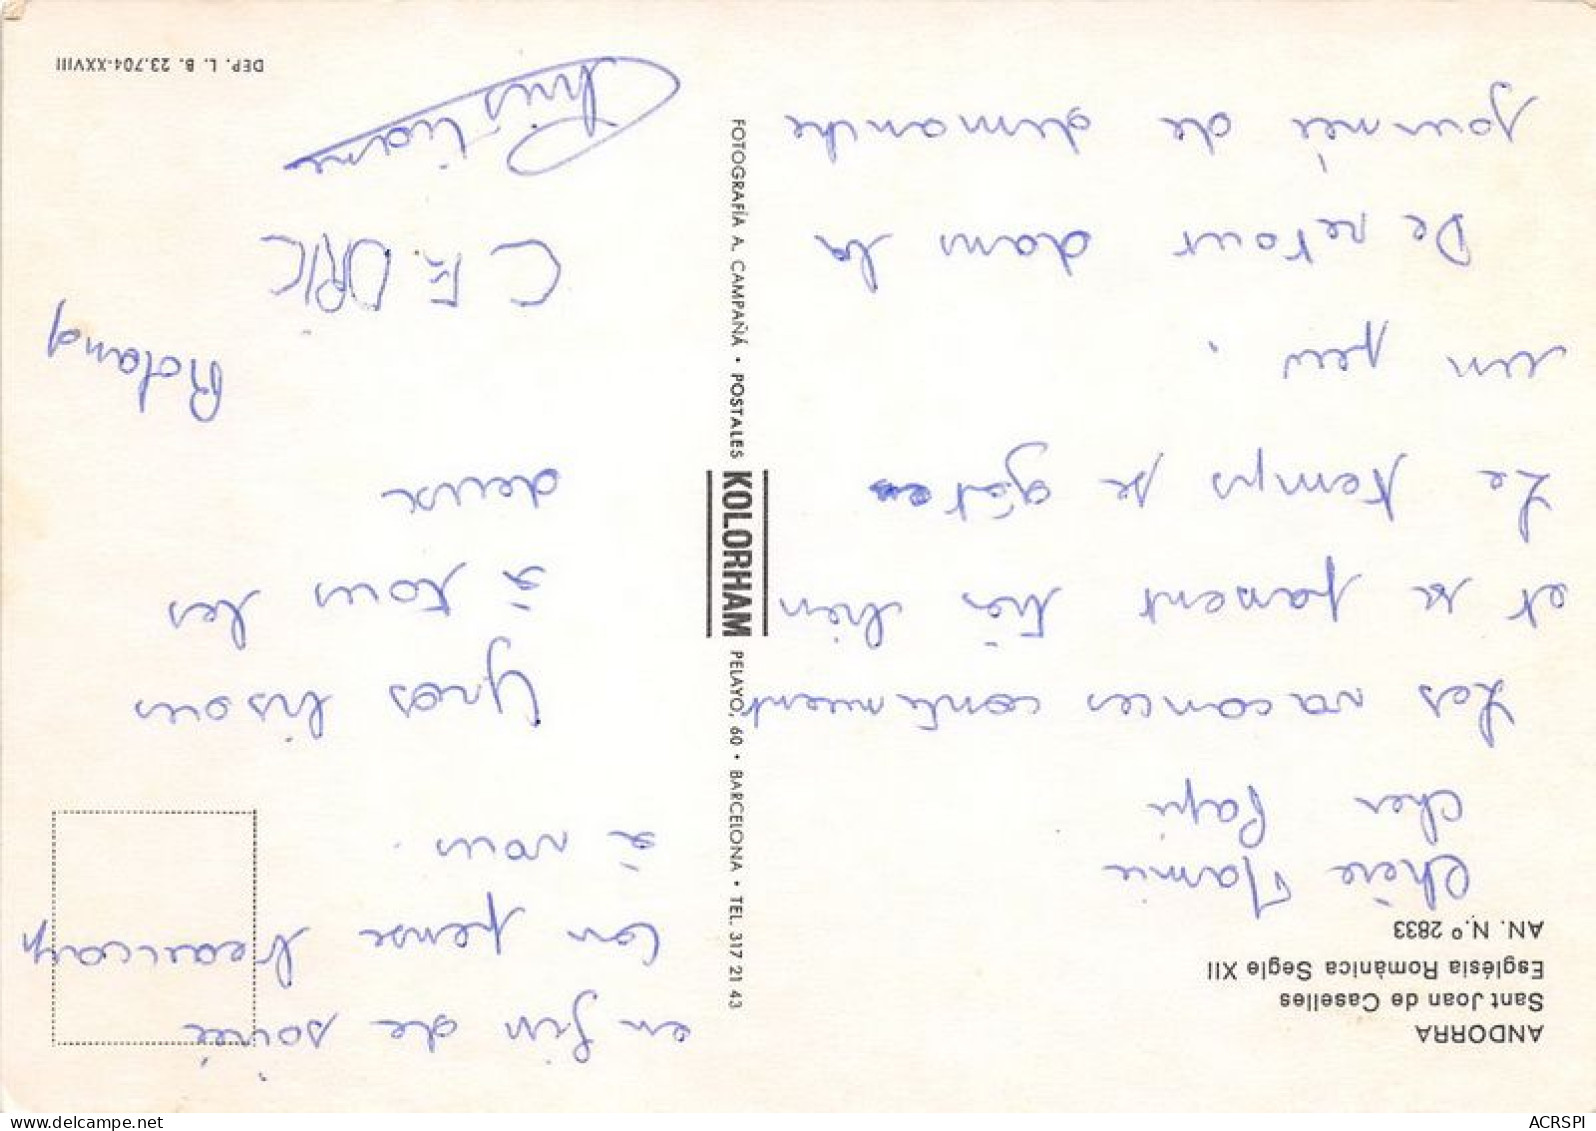 ANDORRA
Sant Joan de Caselles
Església Romànica Segle XII
AN. N.º 2833
Chère Mamie
cher Papi
Les vacances continuent
et se passent très bien
Le temps se gâte
un peu.
De retour dans la
journée de dimanche
en fin de soirée
on pense beaucoup
à vous.
Gros bisous
à tous les
deux
Roland
CEDRIC
Christiane
FOTOGRAFÍA A. CAMPAÑÁ • POSTALES KOLORHAM PELAYO, 60 • BARCELONA • TEL. 317 21 43
DEP. L. B. 23.704-XXVIII
delcampe.net
ACRSPI